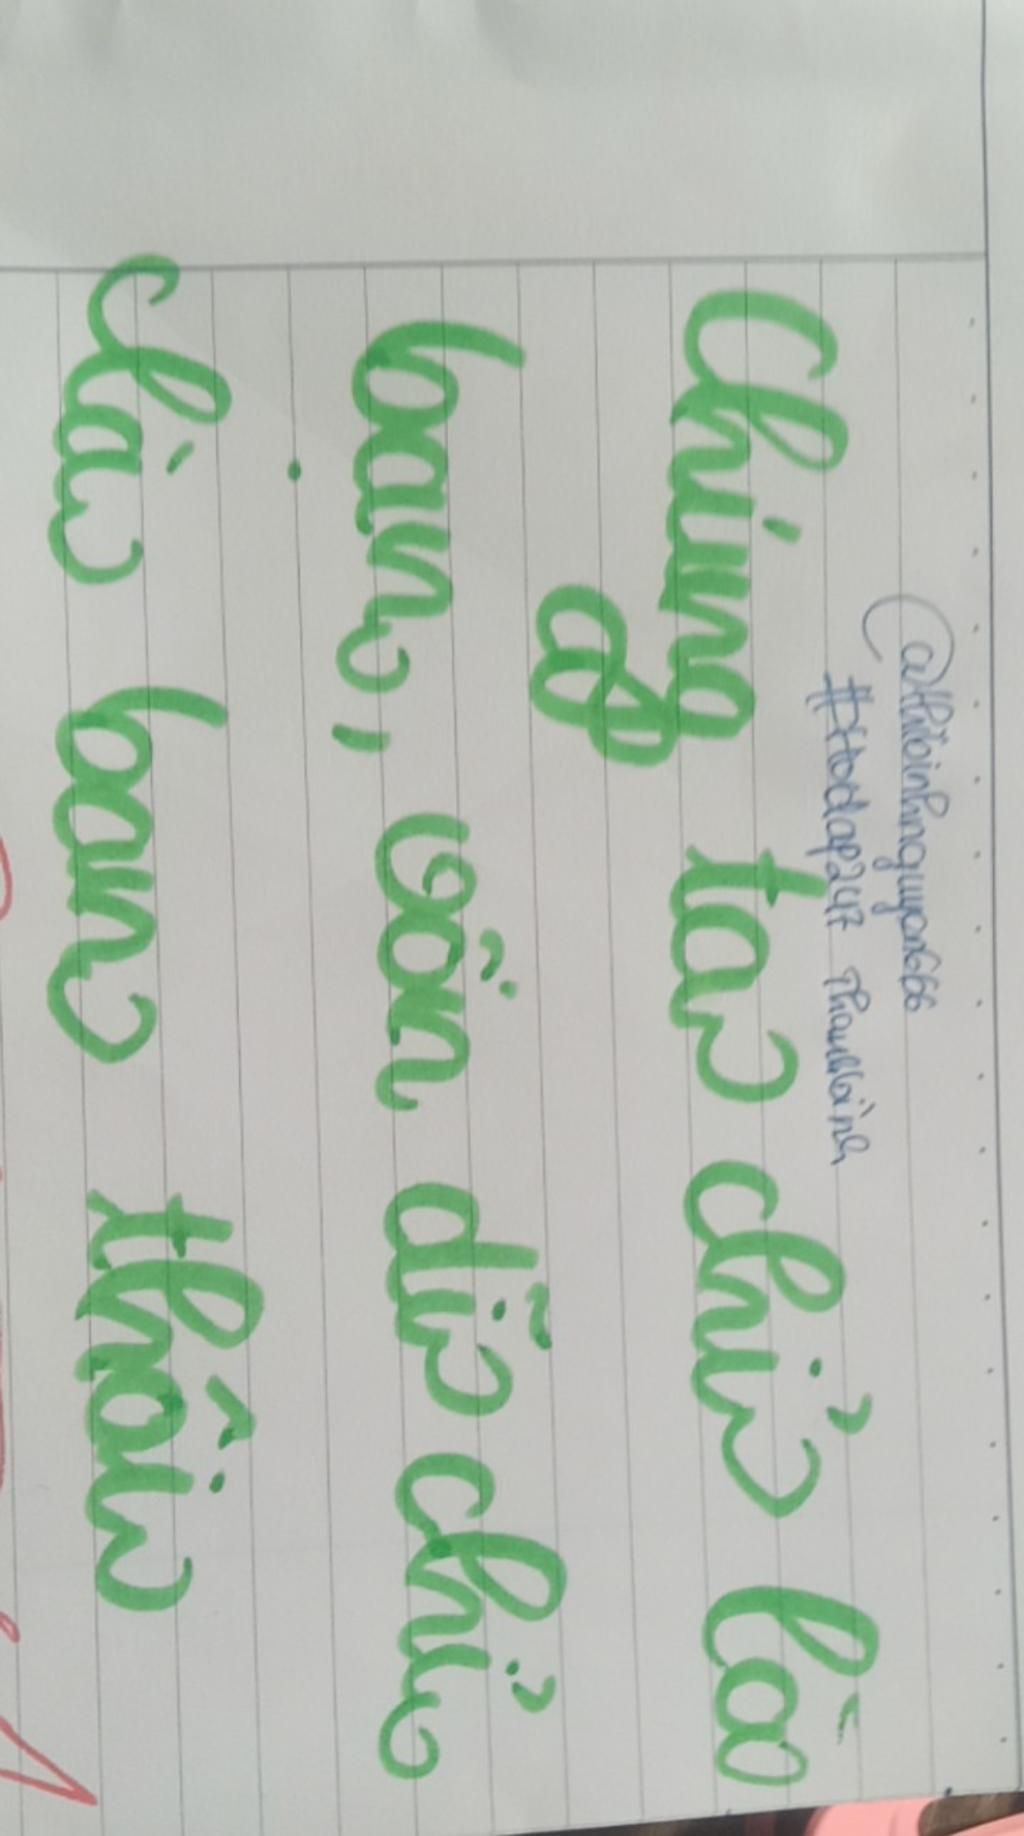 @thibinhnguyen666
#Hodap247 Thanhbình
Chúng ta chỉ là
bạn, vốn dĩ chỉ
là bạn thôi